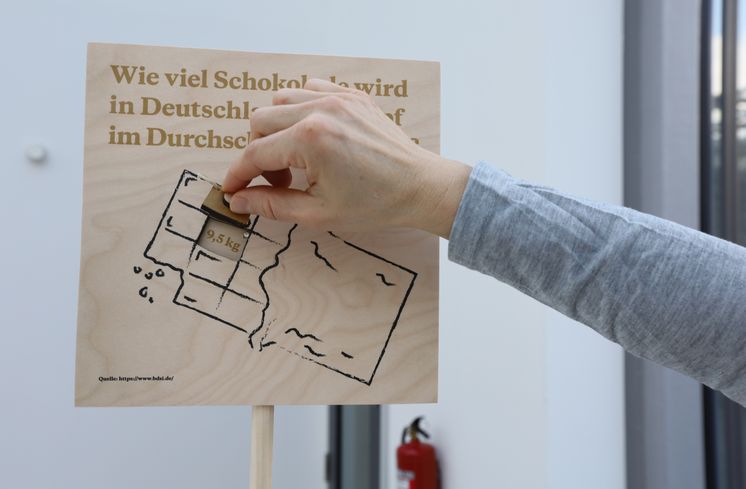 Wie viel Schokol wird
in Deutschl
im Durchsc
9,5 kg
Quelle: https://www.bdsi.de/